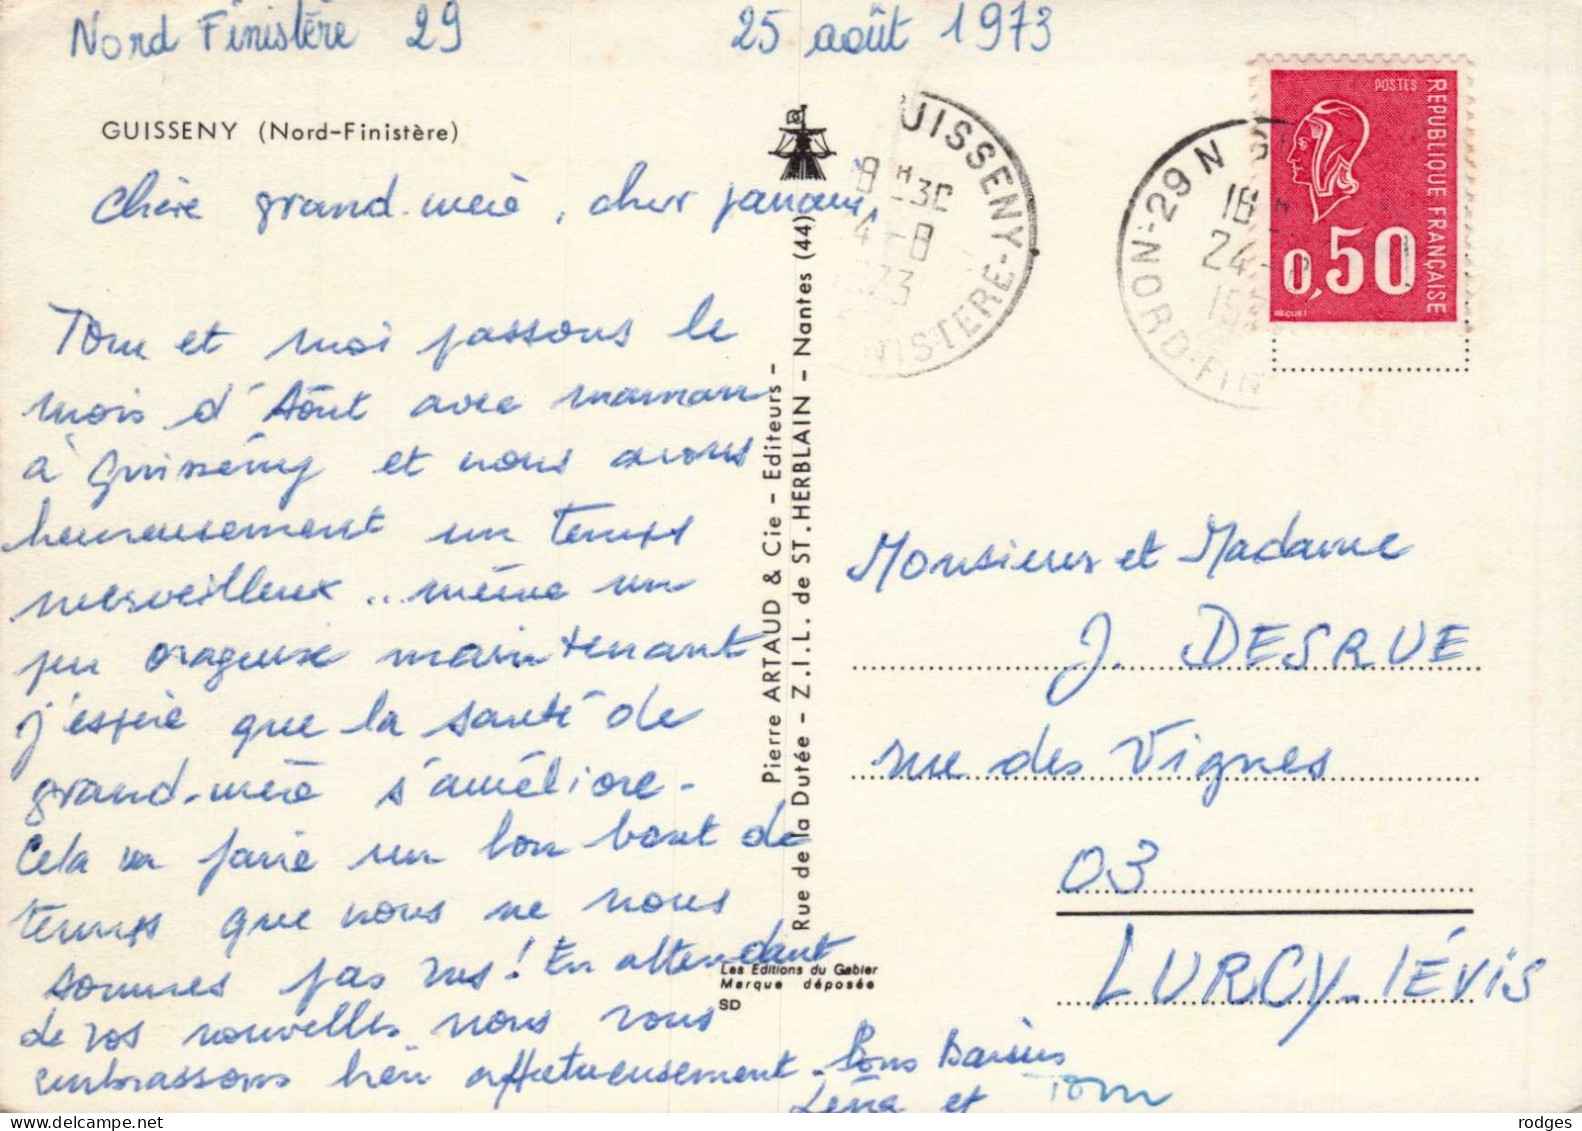 Nord Finistère 29
25 août 1973
GUISSENY (Nord-Finistère)
Chère grand-mère, cher
Tom et moi passons le
mois d'Aôut avec maman
à Guissény et nous avons
heureusement un temps
merveilleux .. même un
peu orageux maintenant
j'espère que la santé de
grand-mère s'améliore -
Cela va faire un bon bout de
temps que nous ne nous
sommes pas vus! En attendant
de vos nouvelles nous vous
embrassons bien affectueusement. Bons Baisers
Léna et Tom
Pierre ARTAUD & Cie - Editeurs -
Rue de la Dutée - Z.I.L. de ST. HERBLAIN - Nantes (44)
Les Editions du Gabier
Marque déposée
SD
UISSENY
8 H 30
4-8
1973
NISTERE-N
29 N
18 H
24-8
19
NORD-FIN
POSTES
REPUBLIQUE FRANÇAISE
0,50
BEQUET
Monsieur et Madame
J. DESRUE
rue des Vignes
03
LURCY-LÉVIS
rodges